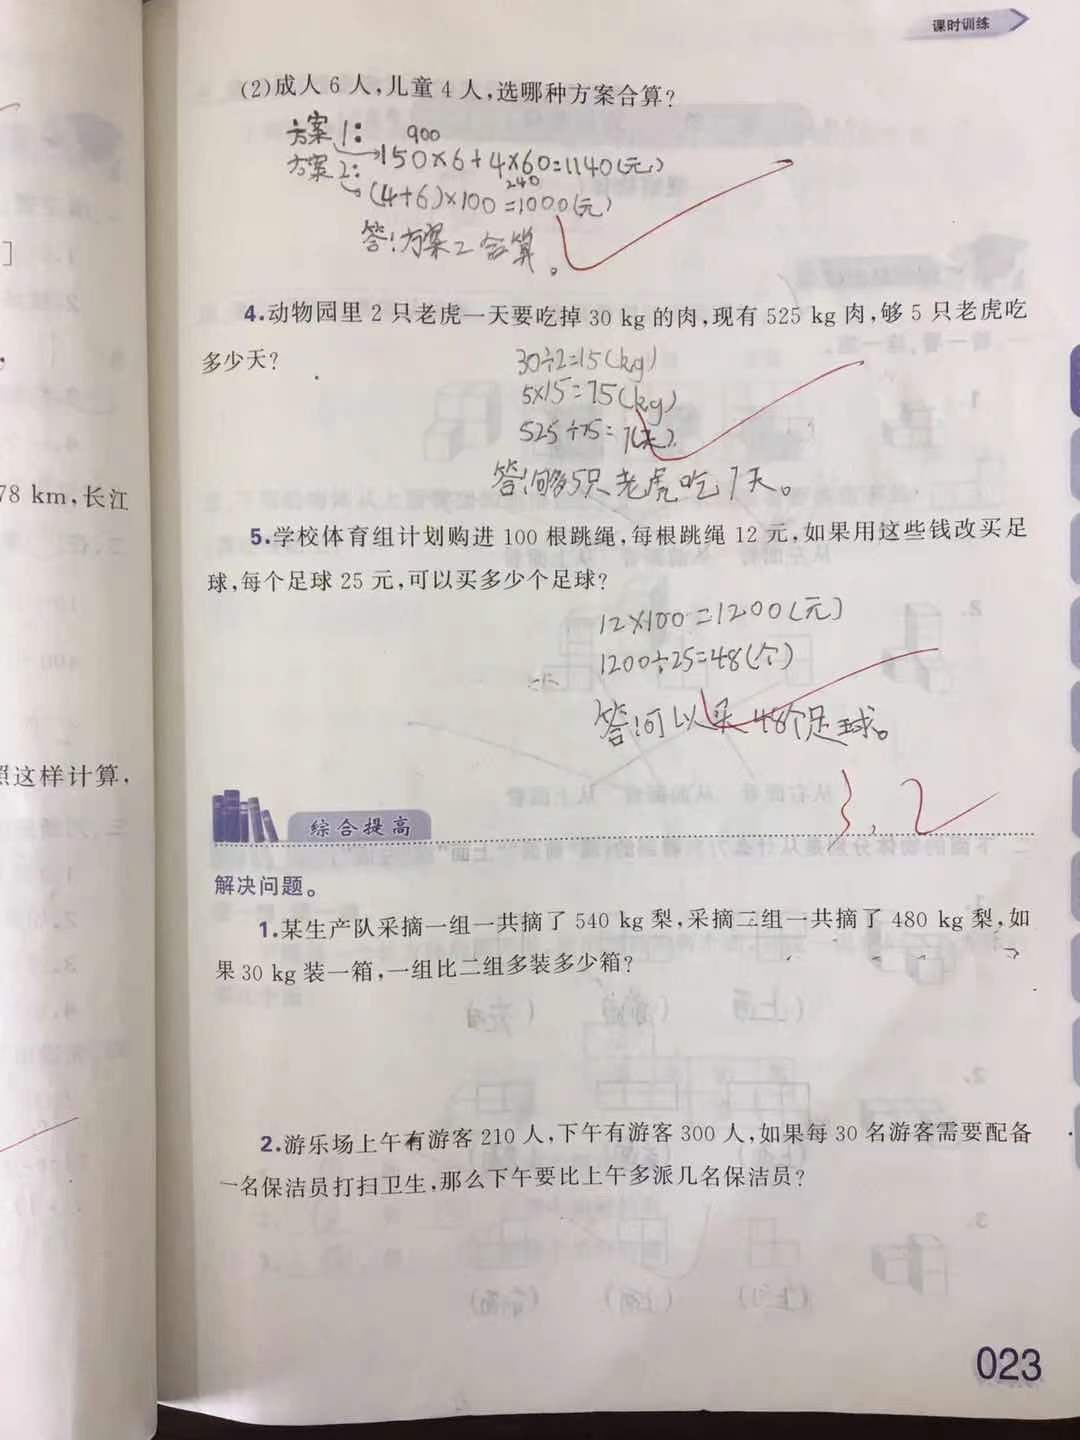 课时训练
(2)成人 6 人,儿童 4 人,选哪种方案合算?
方案1: 900
150×6+4×60=1140(元)
方案2: 240
(4+6)×100=1000(元)
答:方案2合算。
]
4.动物园里 2 只老虎一天要吃掉 30 kg 的肉,现有 525 kg 肉,够 5 只老虎吃
多少天?
30÷2=15(kg)
5×15=75(kg)
525÷75=7(天)
答:够5只老虎吃7天。
78 km,长江
5.学校体育组计划购进 100 根跳绳,每根跳绳 12 元,如果用这些钱改买足
球,每个足球 25 元,可以买多少个足球?
12×100=1200(元)
1200÷25=48(个)
答:可以买48个足球。
照这样计算,
3.2
综合提高
解决问题。
1.某生产队采摘一组一共摘了 540 kg 梨,采摘二组一共摘了 480 kg 梨,如
果 30 kg 装一箱,一组比二组多装多少箱?
2.游乐场上午有游客 210 人,下午有游客 300 人,如果每 30 名游客需要配备
一名保洁员打扫卫生,那么下午要比上午多派几名保洁员?
023